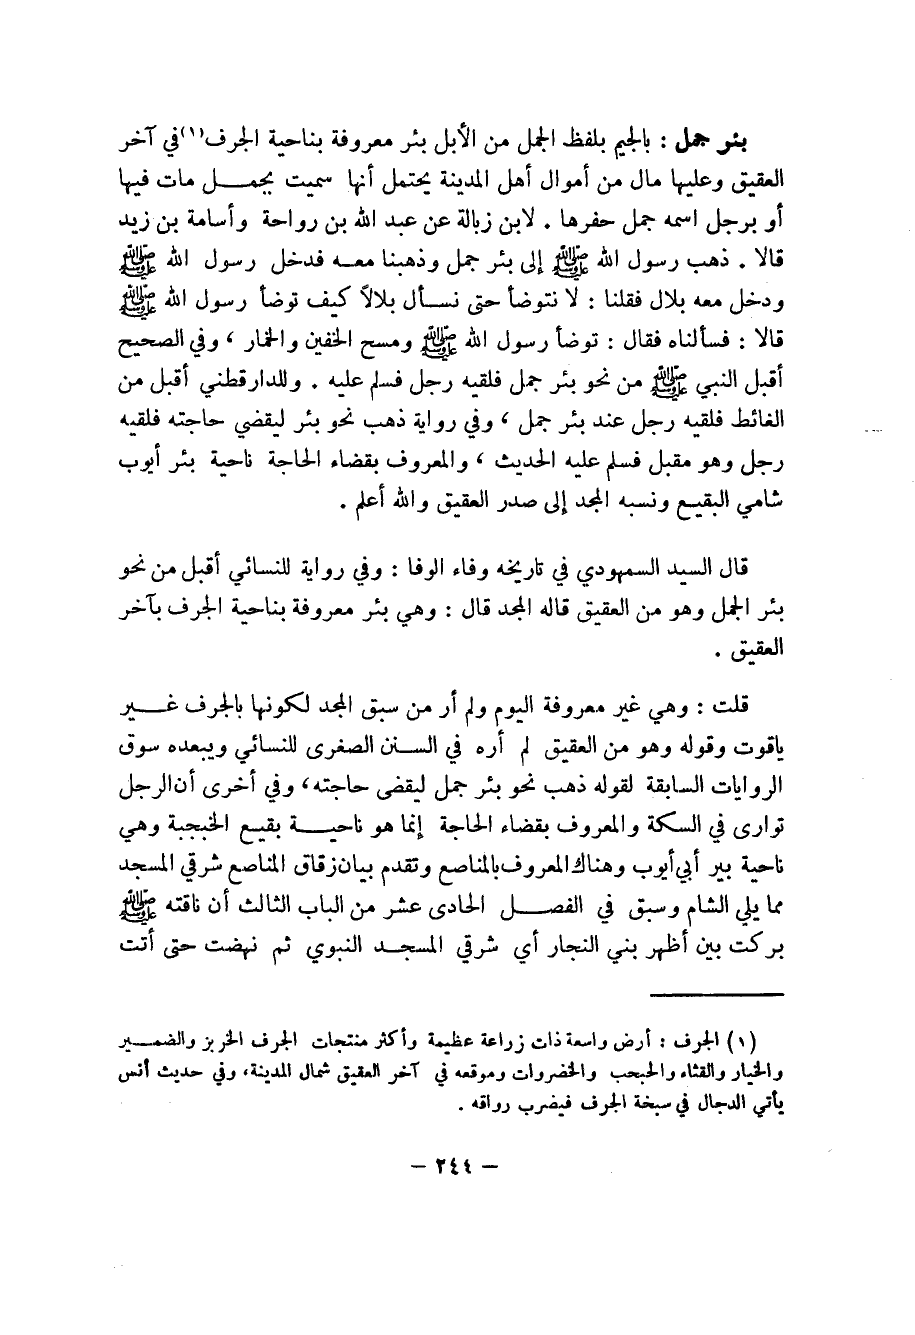 بئر جمل : بالجيم بلفظ الجمل من الأبل بئر معروفة بناحية الجرف(١)في آخر
العقيق وعليها مال من أموال أهل المدينة يحتمل أنها سميت بجمل مات فيها
أو برجل اسمه جمل حفرها . لابن زبالة عن عبد الله بن رواحة وأسامة بن زيد
قالا . ذهب رسول الله ﷺ إلى بئر جمل وذهبنا معه فدخل رسول الله ﷺ
ودخل معه بلال فقلنا : لا نتوضأ حتى نسأل بلالاً كيف توضأ رسول الله ﷺ
قالا : فسألناه فقال : توضأ رسول الله ﷺ ومسح الخفين والخمار ، وفي الصحيح
أقبل النبي ﷺ من نحو بئر جمل فلقيه رجل فسلم عليه . وللدارقطني أقبل من
الغائط فلقيه رجل عند بئر جمل ، وفي رواية ذهب نحو بئر ليقضي حاجته فلقيه
رجل وهو مقبل فسلم عليه الحديث ، والمعروف بقضاء الحاجة ناحية بئر أيوب
شامي البقيع ونسبه المجد إلى صدر العقيق والله أعلم .
قال السيد السمهودي في تاريخه وفاء الوفا : وفي رواية للنسائي أقبل من نحو
بئر الجمل وهو من العقيق قاله المجد قال : وهي بئر معروفة بناحية الجرف بآخر
العقيق .
قلت : وهي غير معروفة اليوم ولم أر من سبق المجد لكونها بالجرف غير
ياقوت وقوله وهو من العقيق لم أره في السنن الصغرى للنسائي ويبعده سوق
الروايات السابقة لقوله ذهب نحو بئر جمل ليقضى حاجته، وفي أخرى أن الرجل
توارى في السكة والمعروف بقضاء الحاجة إنما هو ناحية بقيع الخبجبة وهي
ناحية بير أبي أيوب وهناك المعروف بالمناصع وتقدم بيان زقاق المناصع شرقي المسجد
مما يلي الشام وسبق في الفصل الحادى عشر من الباب الثالث أن ناقته ﷺ
بركت بين أظهر بني النجار أي شرقي المسجد النبوي ثم نهضت حتى أتت
(١) الجرف : أرض واسعة ذات زراعة عظيمة وأكثر منتجات الجرف الخربز والضمير
والخيار والقثاء والحبحب والخضروات وموقعه في آخر العقيق شمال المدينة، وفي حديث أنس
يأتي الدجال في سبخة الجرف فيضرب رواقه .
– ٢٤٤ –